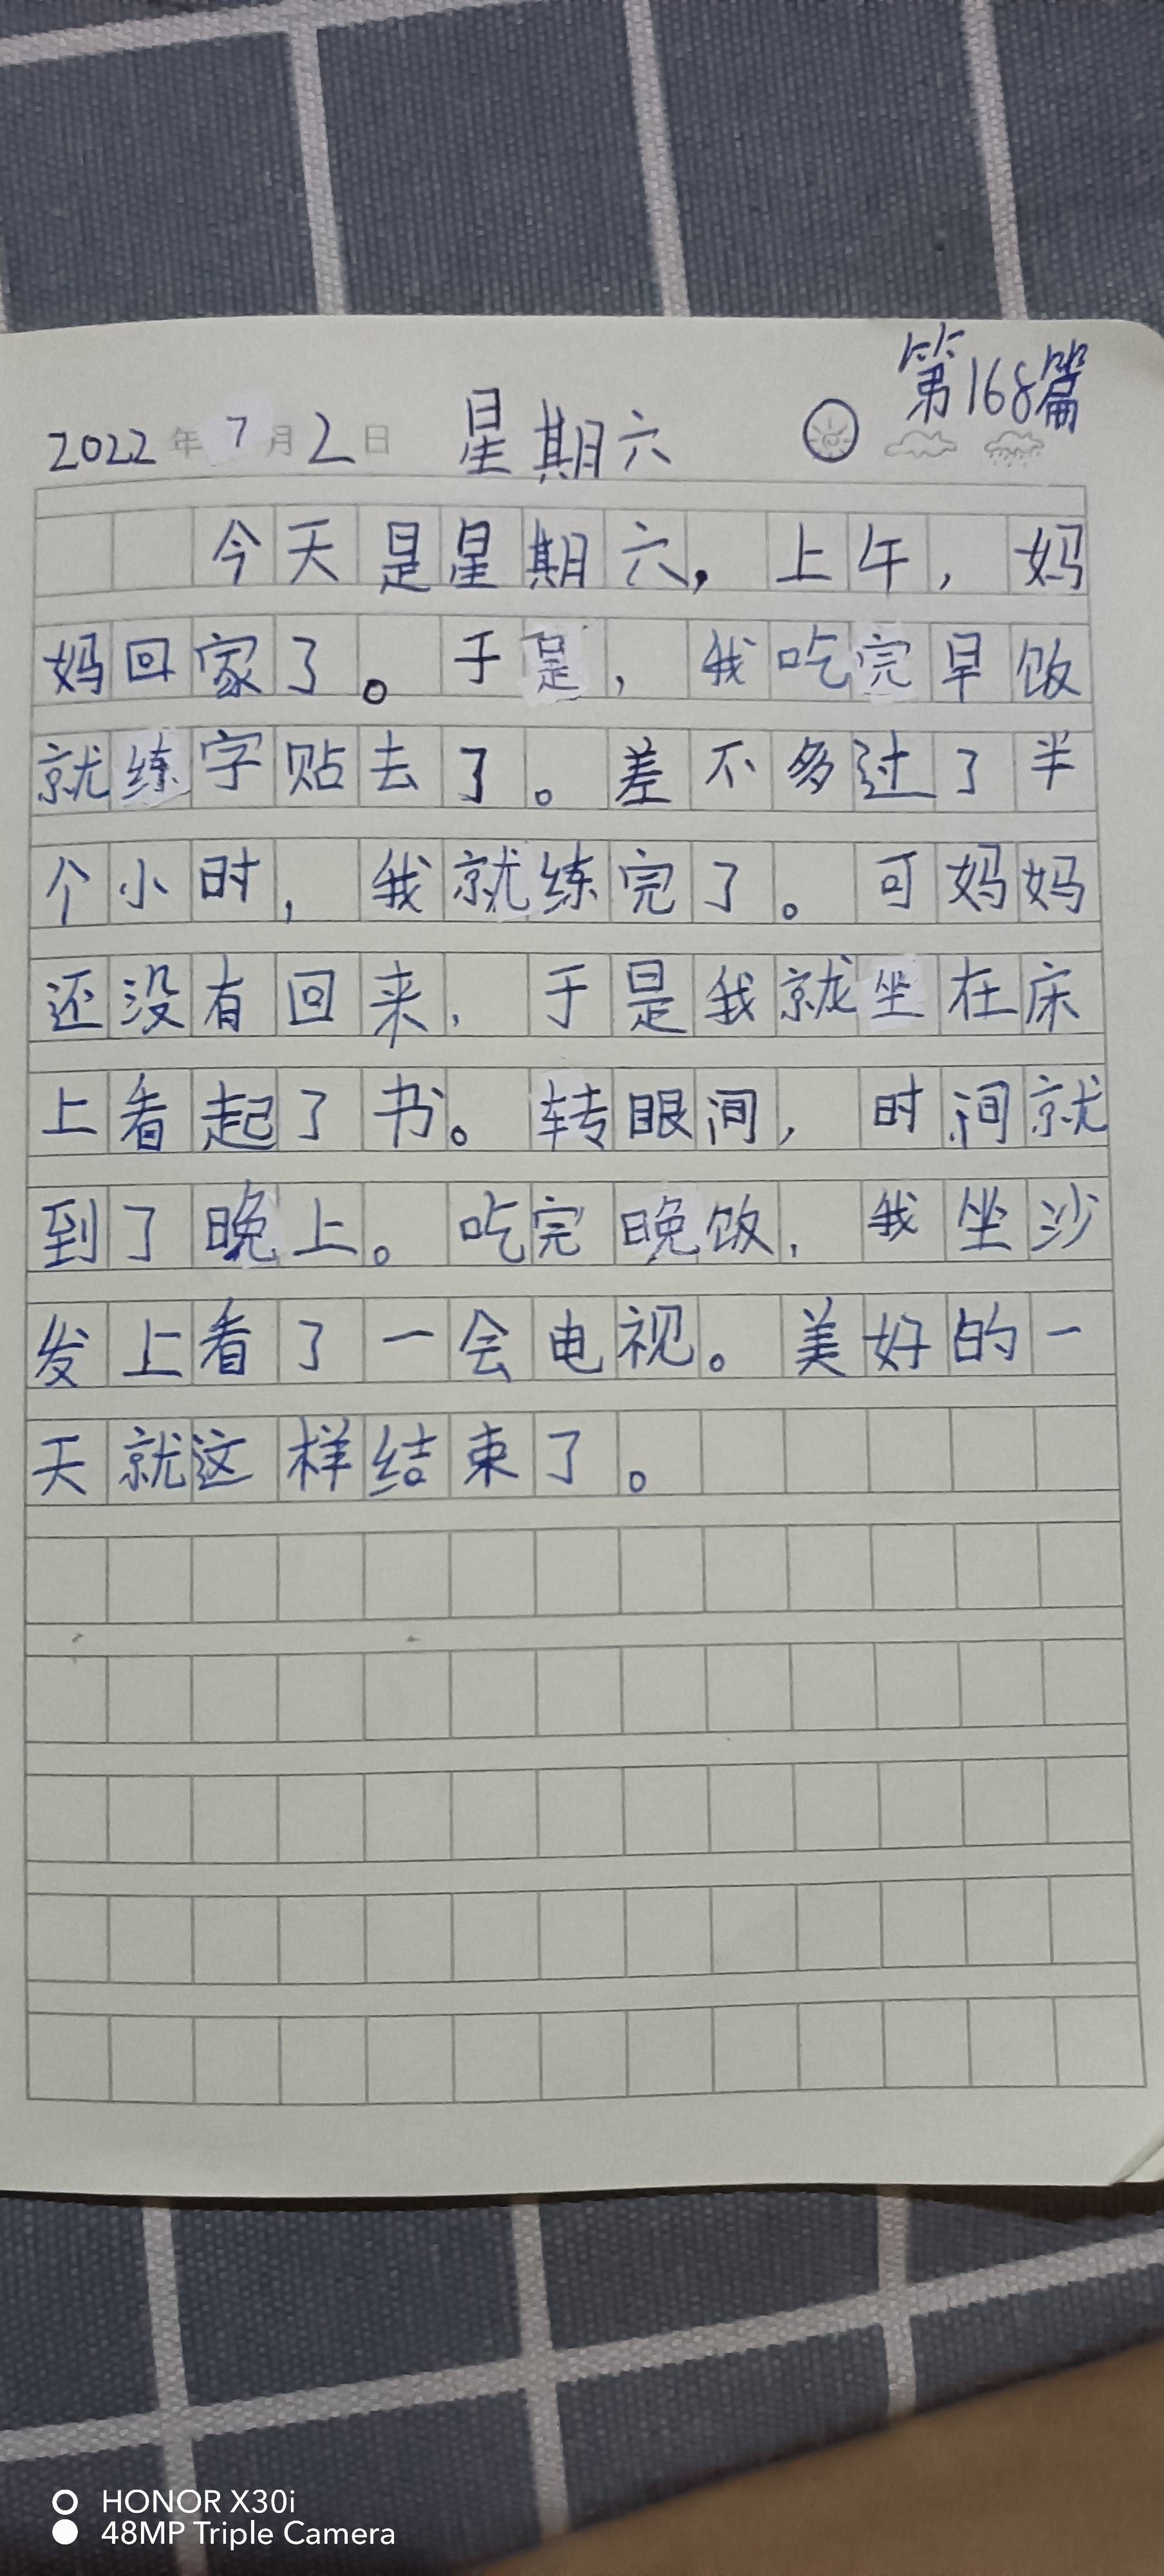 第168篇
2022年7月2日 星期六
今天是星期六，上午，妈
妈回家了。于是，我吃完早饭
就练字贴去了。差不多过了半
个小时，我就练完了。可妈妈
还没有回来，于是我就坐在床
上看起了书。转眼间，时间就
到了晚上。吃完晚饭，我坐沙
发上看了一会电视。美好的一
天就这样结束了。
HONOR X30i
48MP Triple Camera